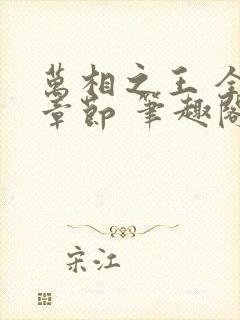 萬相之王 全
章節 筆趣閣
宋江